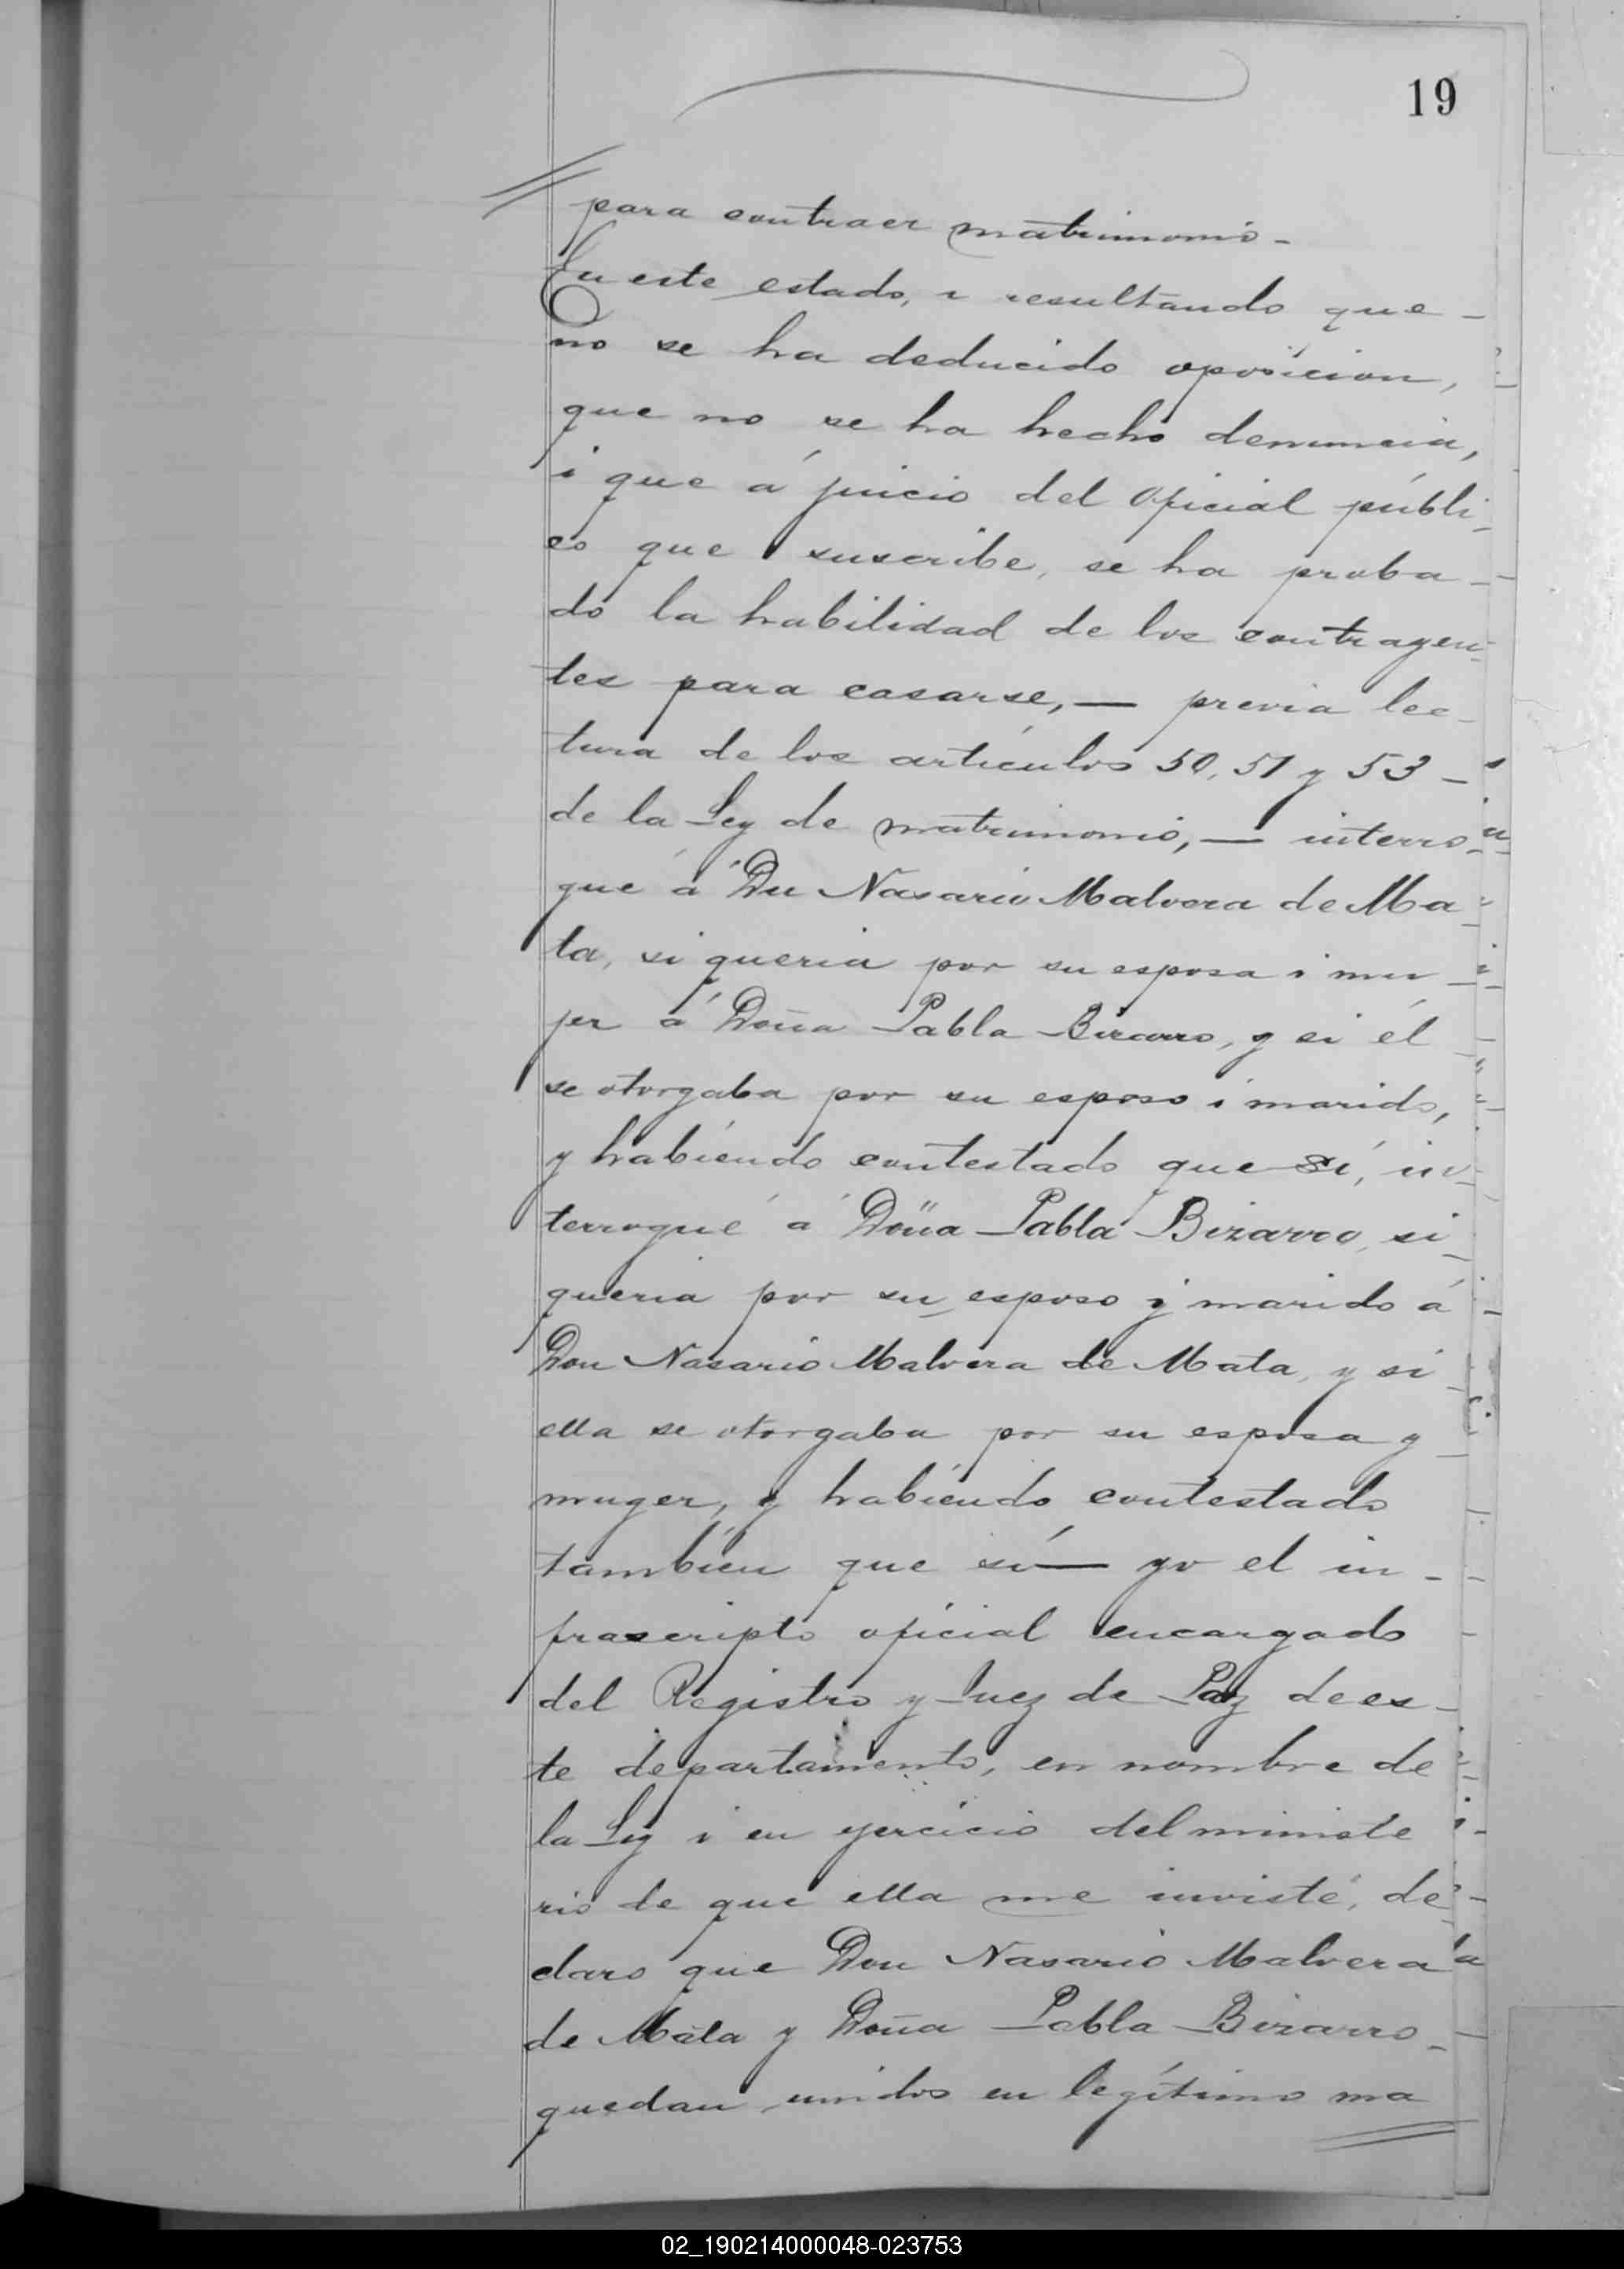 19
para contraer matrimonio-
En este estado, i resultando que-
no se ha deducido oposicion,
que no se ha hecho denuncia,
i que á juicio del Oficial públi-
co que suscribe, se ha proba-
do la habilidad de los contrayen-
tes para casarse,— previa lec-
tura de los artículos 50, 51 y 53-
de la Ley de matrimonio,— interro-
gué á Dn Nasario Malvera de Ma-
ta, si queria por su esposa i mu-
jer á Doña Pabla Bizarro, y si él
se otorgaba por su esposo i marido,
y habiendo contestado que sí, in-
terrogué á Doña Pabla Bizarro, si
queria por su esposo y marido á
Don Nasario Malvera de Mata, y si
ella se otorgaba por su esposa y
muger, y habiendo contestado
también que sí— yo el in-
frascripto oficial encargado
del Registro y Juez de Paz de es-
te departamento, en nombre de
la Ley i en ejercicio del ministe
rio de que ella me inviste, de-
claro que Don Nasario Malvera
de Mata y Doña Pabla Bizarro-
quedan unidos en legítimo ma
02_190214000048-023753